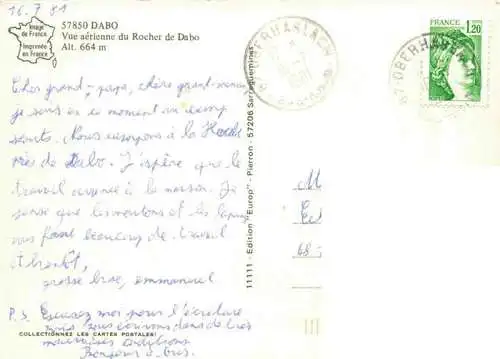 16.7.81
Image
de France
Imprimée
en France
57850 DABO
Vue aérienne du Rocher de Dabo
Alt. 664 m
FRANCE
1,20
67-OBERHASLACH
Cher grand-papa, chère grand-maman
je suis en ce moment au camp
scouts. Nous campons à la Hoube
près de Dabo. J'espère que le
travail avance à la maison. Je
pense que les moutons et les lapins
vous font beaucoup de travail
A bientôt,
grosse bise, emmanuel
P.S. Excusez moi pour l'écriture
mais nous écrivons dans de très
mauvaises conditions
Bonjour à tous.
M
48
11111 - Edition "Europ" - Pierron - 57206 Sarreguemines
COLLECTIONNEZ LES CARTES POSTALES